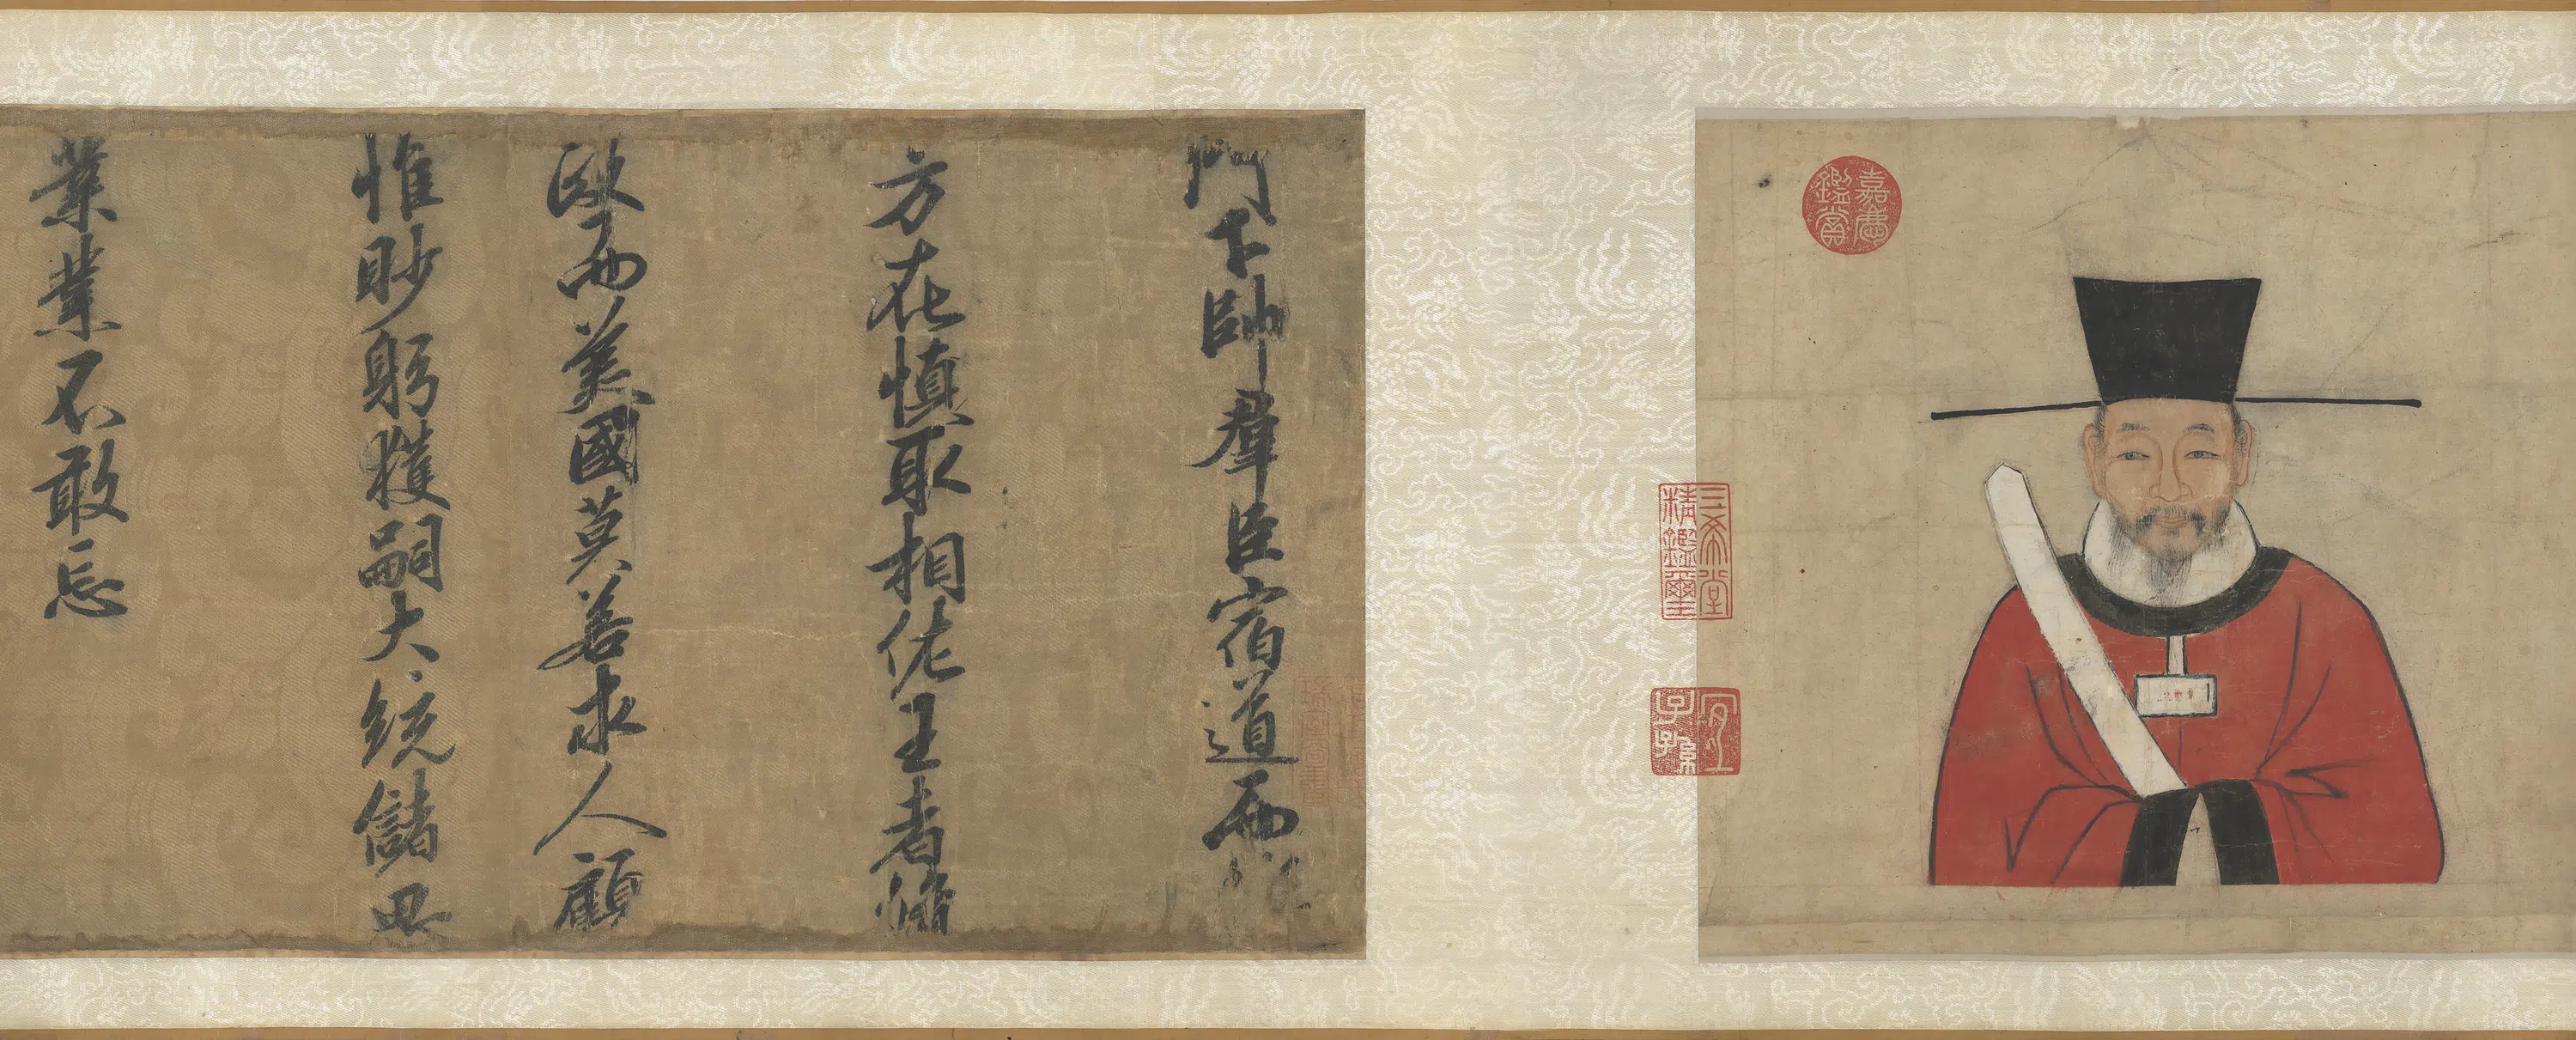 嘉慶鑑賞
三希堂精鑑璽
宜子孫
門下帥羣臣宿道而
方在慎取相佐王者脩
政而美國莫若求人顧
惟眇躬獲嗣大統儲思
業業不敢忘